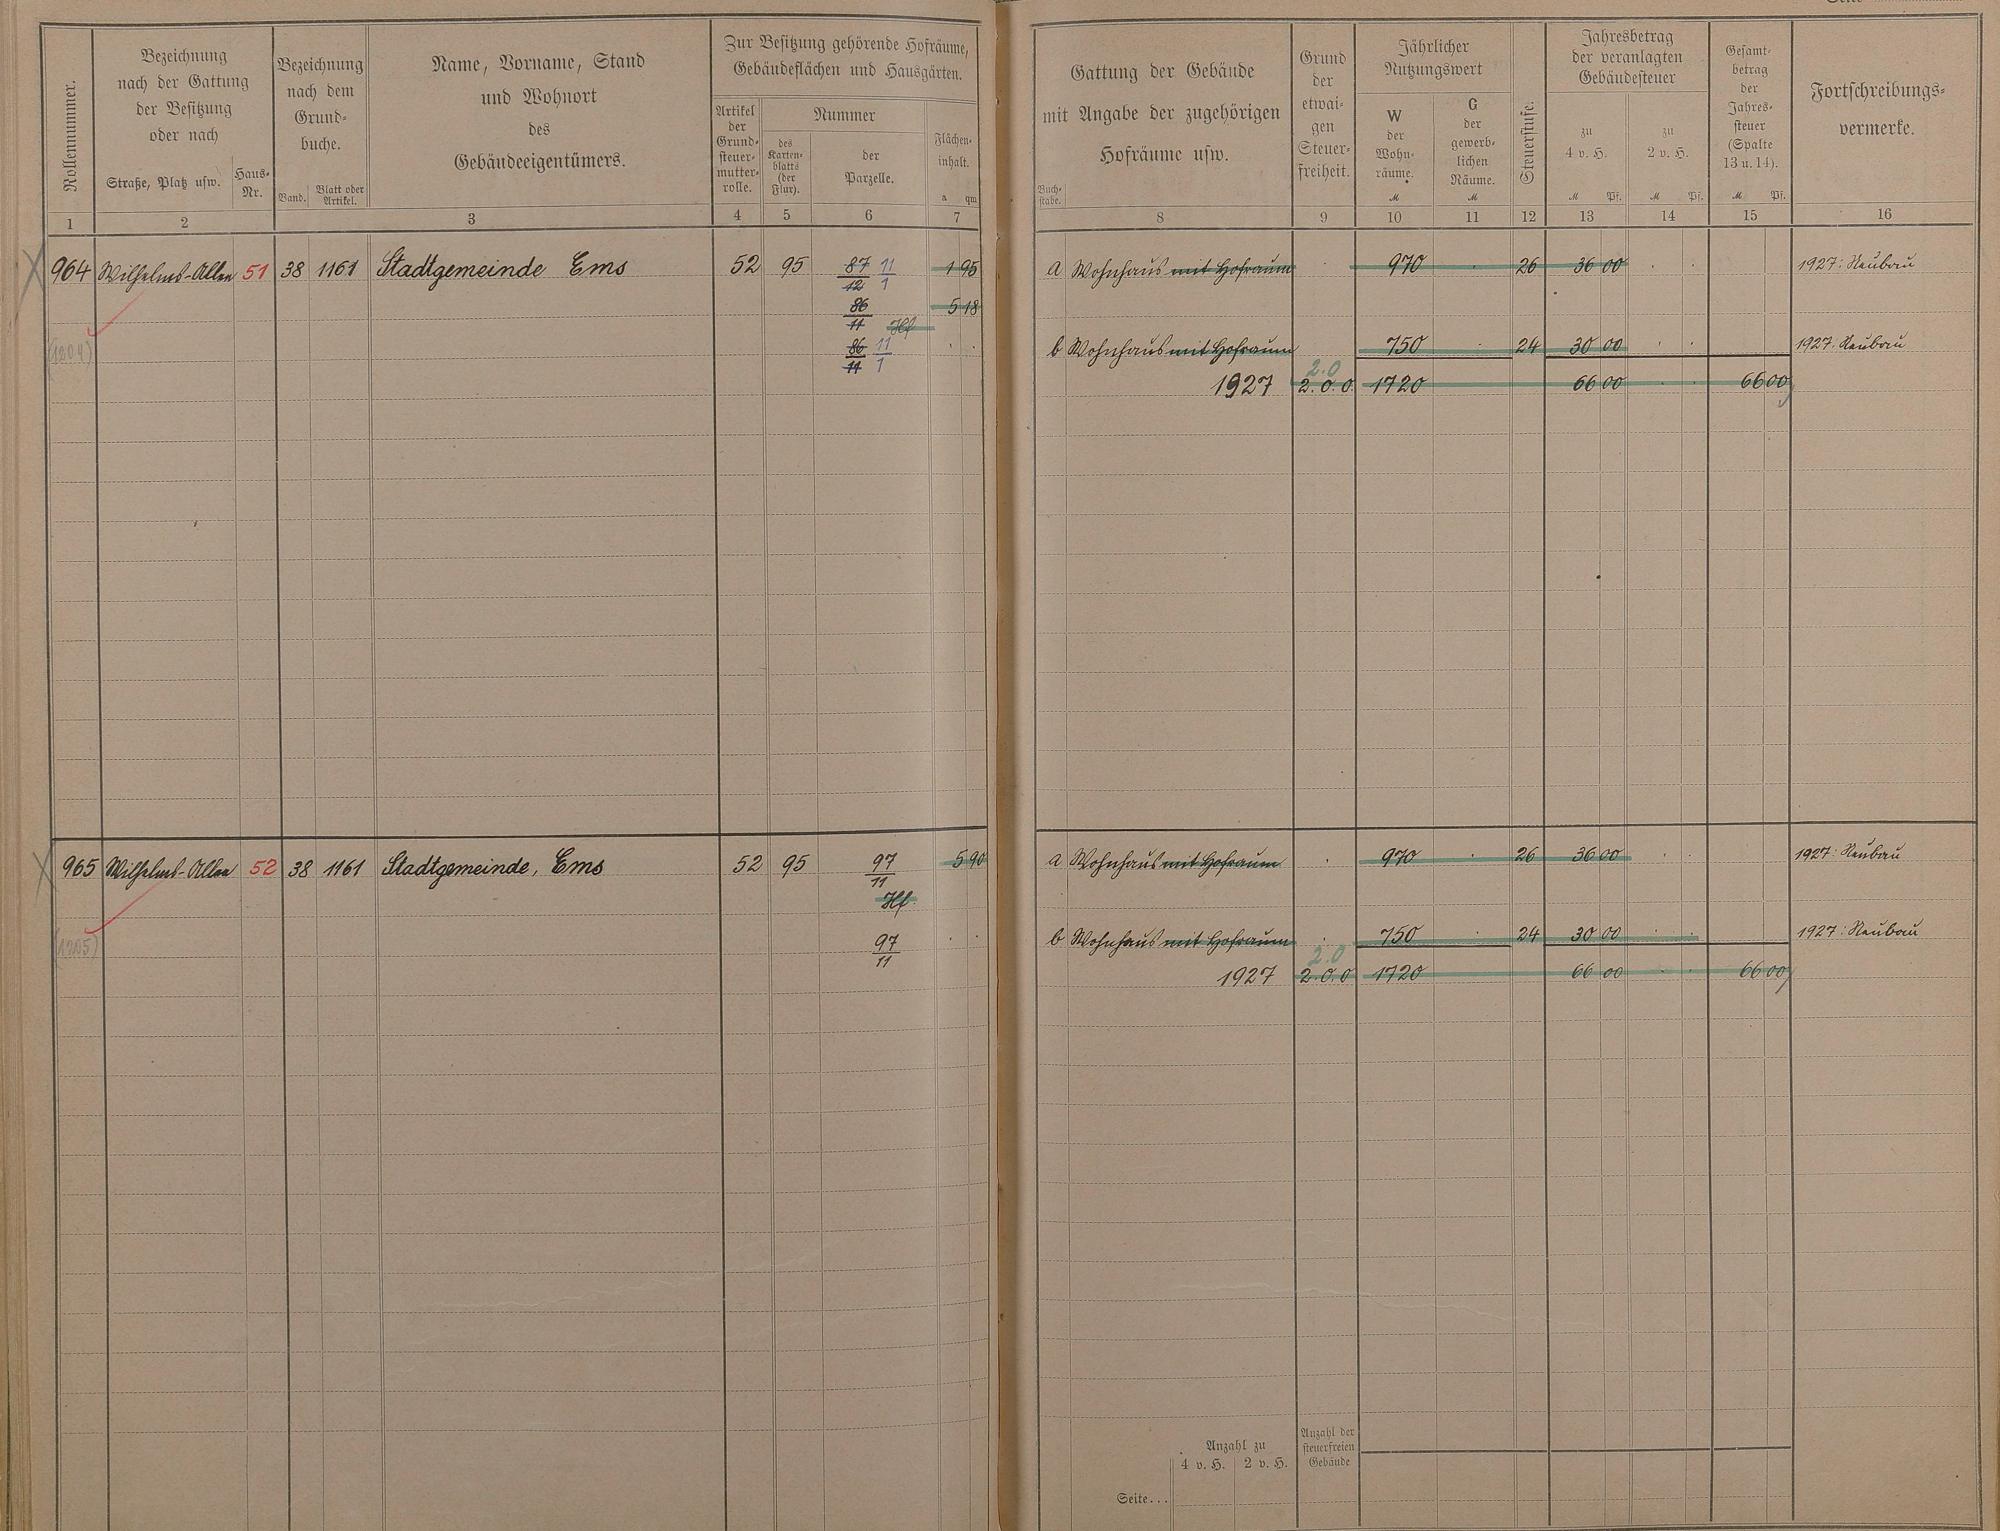 Seite
Rollennummer.
Bezeichnung
nach der Gattung
der Besitzung
oder nach
Straße, Platz usw.
Haus-
Nr.
Bezeichnung
nach dem
Grund-
buche.
Band.
Blatt oder
Artikel.
Name, Vorname, Stand
und Wohnort
des
Gebäudeeigentümers.
Zur Besitzung gehörende Hofräume,
Gebäudeflächen und Hausgärten.
Artikel
der
Grund-
steuer-
mutter-
rolle.
Nummer
des
Karten-
blatts
(der
Flur).
der
Parzelle.
Flächen-
inhalt.
a qm
Gattung der Gebäude
mit Angabe der zugehörigen
Hofräume usw.
Buch-
stabe.
Grund
der
etwai-
gen
Steuer-
freiheit.
Jährlicher
Nutzungswert
W
der
Wohn-
räume.
M
G
der
gewerb-
lichen
Räume.
M
Steuerstufe.
Jahresbetrag
der veranlagten
Gebäudesteuer
zu
4 v. H.
M Pf.
zu
2 v. H.
M Pf.
Gesamt-
betrag
der
Jahres-
steuer
(Spalte
13 u. 14).
M Pf.
Fortschreibungs-
vermerke.
1 2 3 4 5 6 7 8 9 10 11 12 13 14 15 16
964 Wilhelms-Allee 51 38 1161 Stadtgemeinde Ems 52 95 87/12 11/1 1 95 a Wohnhaus mit Hofraum 970 26 36 00 1927: Neubau
86/11 Hf 5 18
(1204) 86/11 11/1 b Wohnhaus mit Hofraum 750 24 30 00 1927: Neubau
2.0
1927 2.0.0. 1720 66 00 66 00
965 Wilhelms-Allee 52 38 1161 Stadtgemeinde, Ems 52 95 97/11 5 90 a Wohnhaus mit Hofraum 970 26 36 00 1927: Neubau
Hf.
(1205) 97/11 b Wohnhaus mit Hofraum 750 24 30 00 1927: Neubau
2.0
1927 2.0.0 1720 66 00 66 00
Anzahl zu
4 v. H. 2 v. H.
Anzahl der
steuerfreien
Gebäude
Seite...